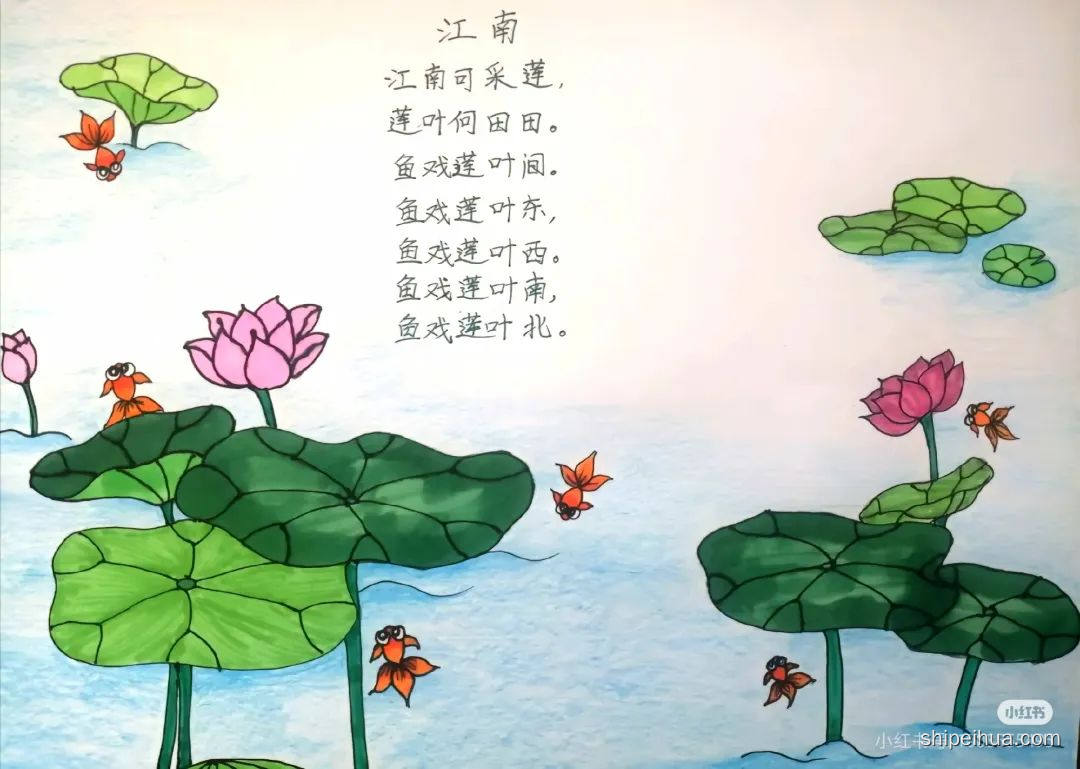 江南
江南可采莲,
莲叶何田田。
鱼戏莲叶间。
鱼戏莲叶东,
鱼戏莲叶西。
鱼戏莲叶南,
鱼戏莲叶北。
小红书
小红书
shipeihua.com